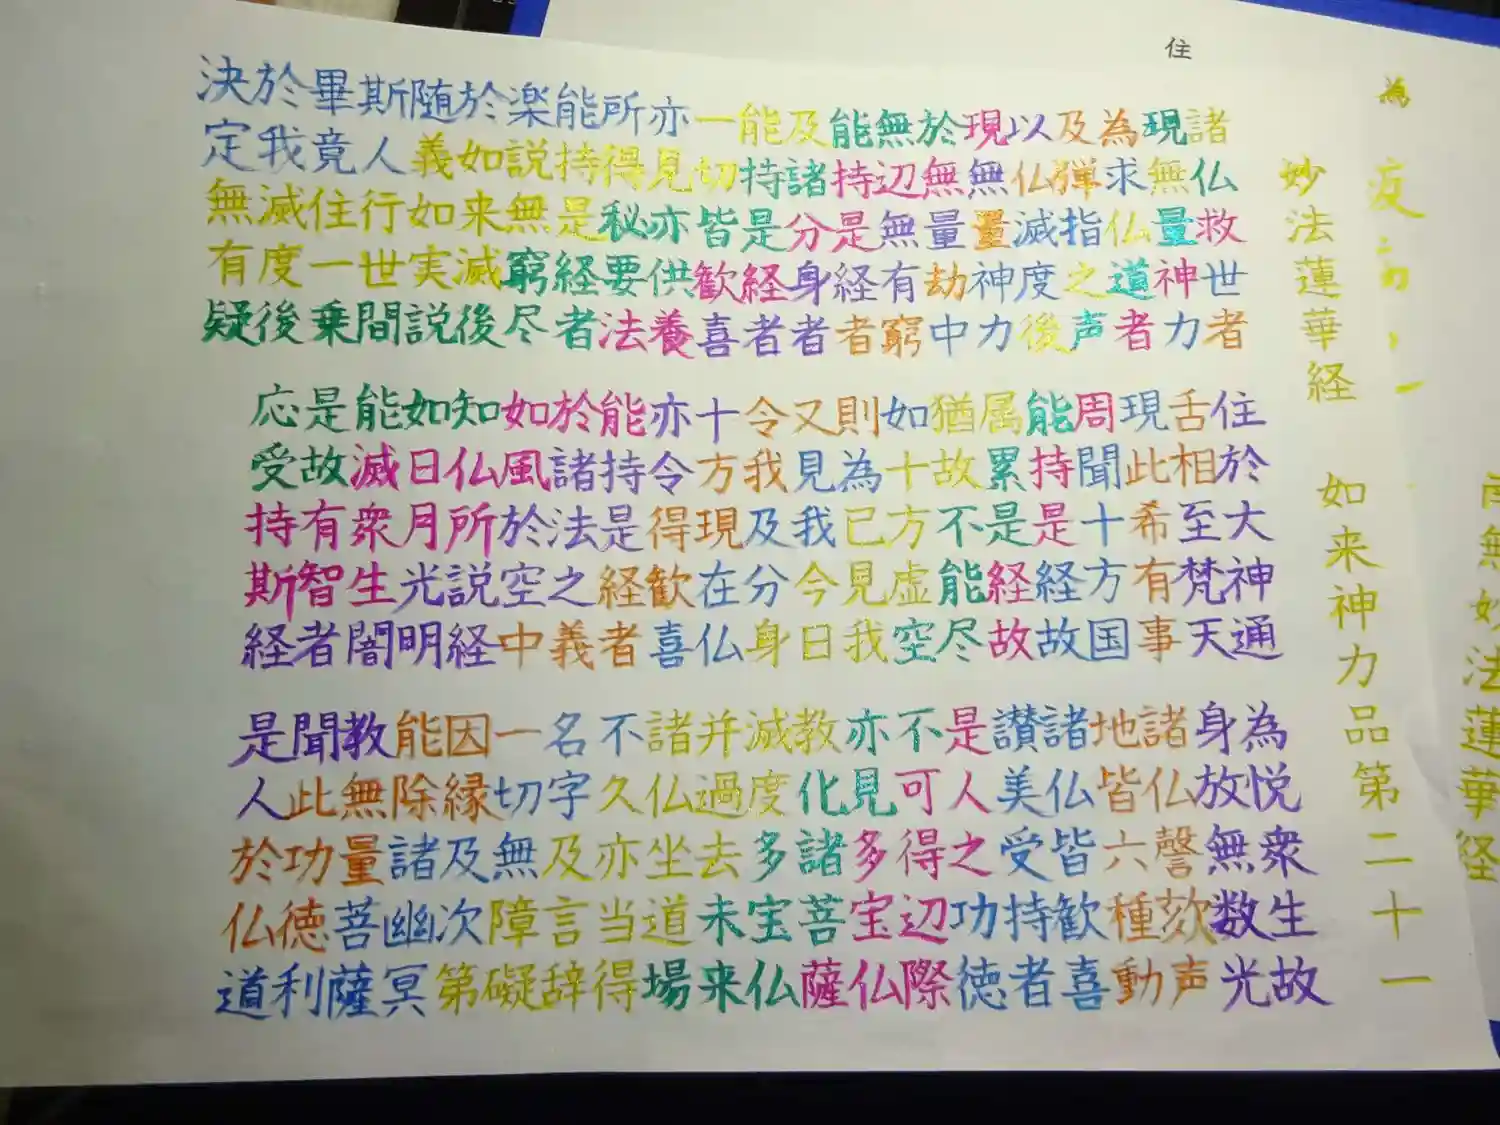 南無妙法蓮華経
為
妙法蓮華経 如来神力品第二十一
住
諸仏救世者 住於大神通 為悦衆生故
現無量神力 舌相至梵天 身放無数光
為求仏道者 現此希有事 諸仏謦欬声
及弾指之声 周聞十方国 地皆六種動
以仏滅度後 能持是経故 諸仏皆歓喜
現無量神力 属累是経故 讃美受持者
於無量劫中 猶故不能尽 是人之功徳
無辺無有窮 如十方虚空 不可得辺際
能持是経者 則為已見我 亦見多宝仏
及諸分身者 又見我今日 教化諸菩薩
能持是経者 令我及分身 滅度多宝仏
一切皆歓喜 十方現在仏 并過去未来
亦見亦供養 亦令得歓喜 諸仏坐道場
所得秘要法 能持是経者 不久亦当得
能持是経者 於諸法之義 名字及言辞
楽説無窮尽 如風於空中 一切無障礙
於如来滅後 知仏所説経 因縁及次第
随義如実説 如日月光明 能除諸幽冥
斯人行世間 能滅衆生闇 教無量菩薩
畢竟住一乗 是故有智者 聞此功徳利
於我滅度後 応受持斯経 是人於仏道
決定無有疑